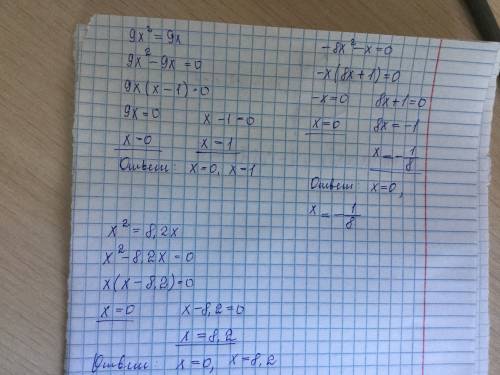 9x² = 9x
9x² - 9x = 0
9x(x - 1) = 0
9x = 0   x - 1 = 0
x = 0   x = 1
Ответ: x = 0, x = 1
-8x² - x = 0
-x(8x + 1) = 0
-x = 0   8x + 1 = 0
x = 0   8x = -1
x = -1/8
Ответ x = 0,
x = -1/8
x² = 8,2x
x² - 8,2x = 0
x(x - 8,2) = 0
x = 0   x - 8,2 = 0
x = 8,2
Ответ: x = 0, x = 8,2